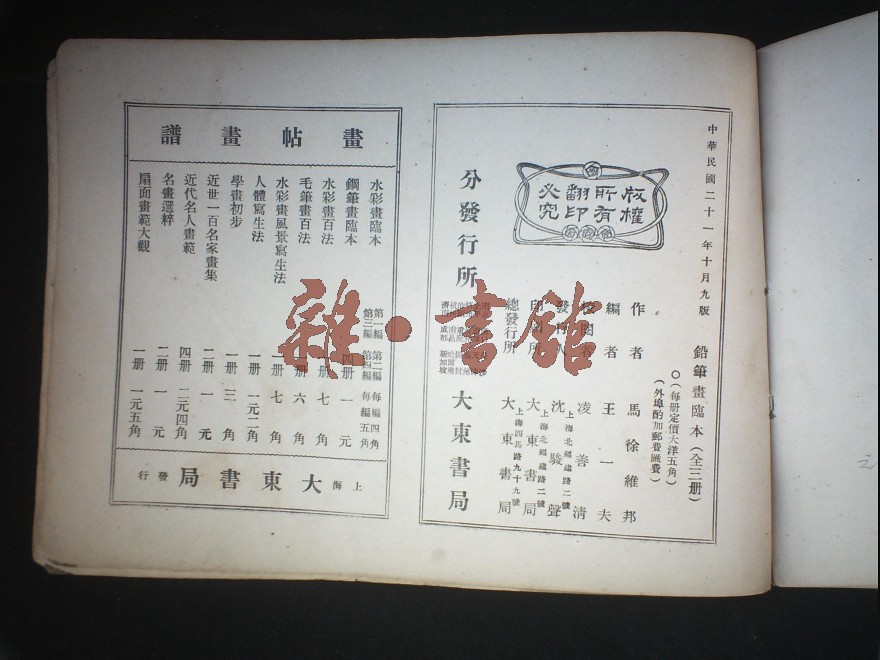 中華民國二十一年十月九版
鉛筆畫臨本（全三册）
○（每册定價大洋五角）
（外埠酌加郵費匯費）
版權所有翻印必究
作者 馬徐維邦
編者 王一夫
校閱者 凌善清
上海北福建路二號
發行人 沈駿聲
上海北福建路二號
印刷所 大東書局
上海四馬路九十九號
總發行所 大東書局
分發行所
大東書局
畫帖畫譜
水彩畫臨本 第一編 第二編 每編四角
第三編 第四編 每編五角
鋼筆畫臨本 四册 一元
水彩畫百法 一册 七角
毛筆畫百法 一册 六角
水彩畫風景寫生法 一册 七角
人體寫生法 一册 一元二角
學畫初步 一册 三角
近世一百名家畫集 二册 一元
近代名人畫範 四册 二元四角
名畫選粹 二册 一元
扇面畫範大觀 一册 一元五角
上海大東書局發行
雜·書館